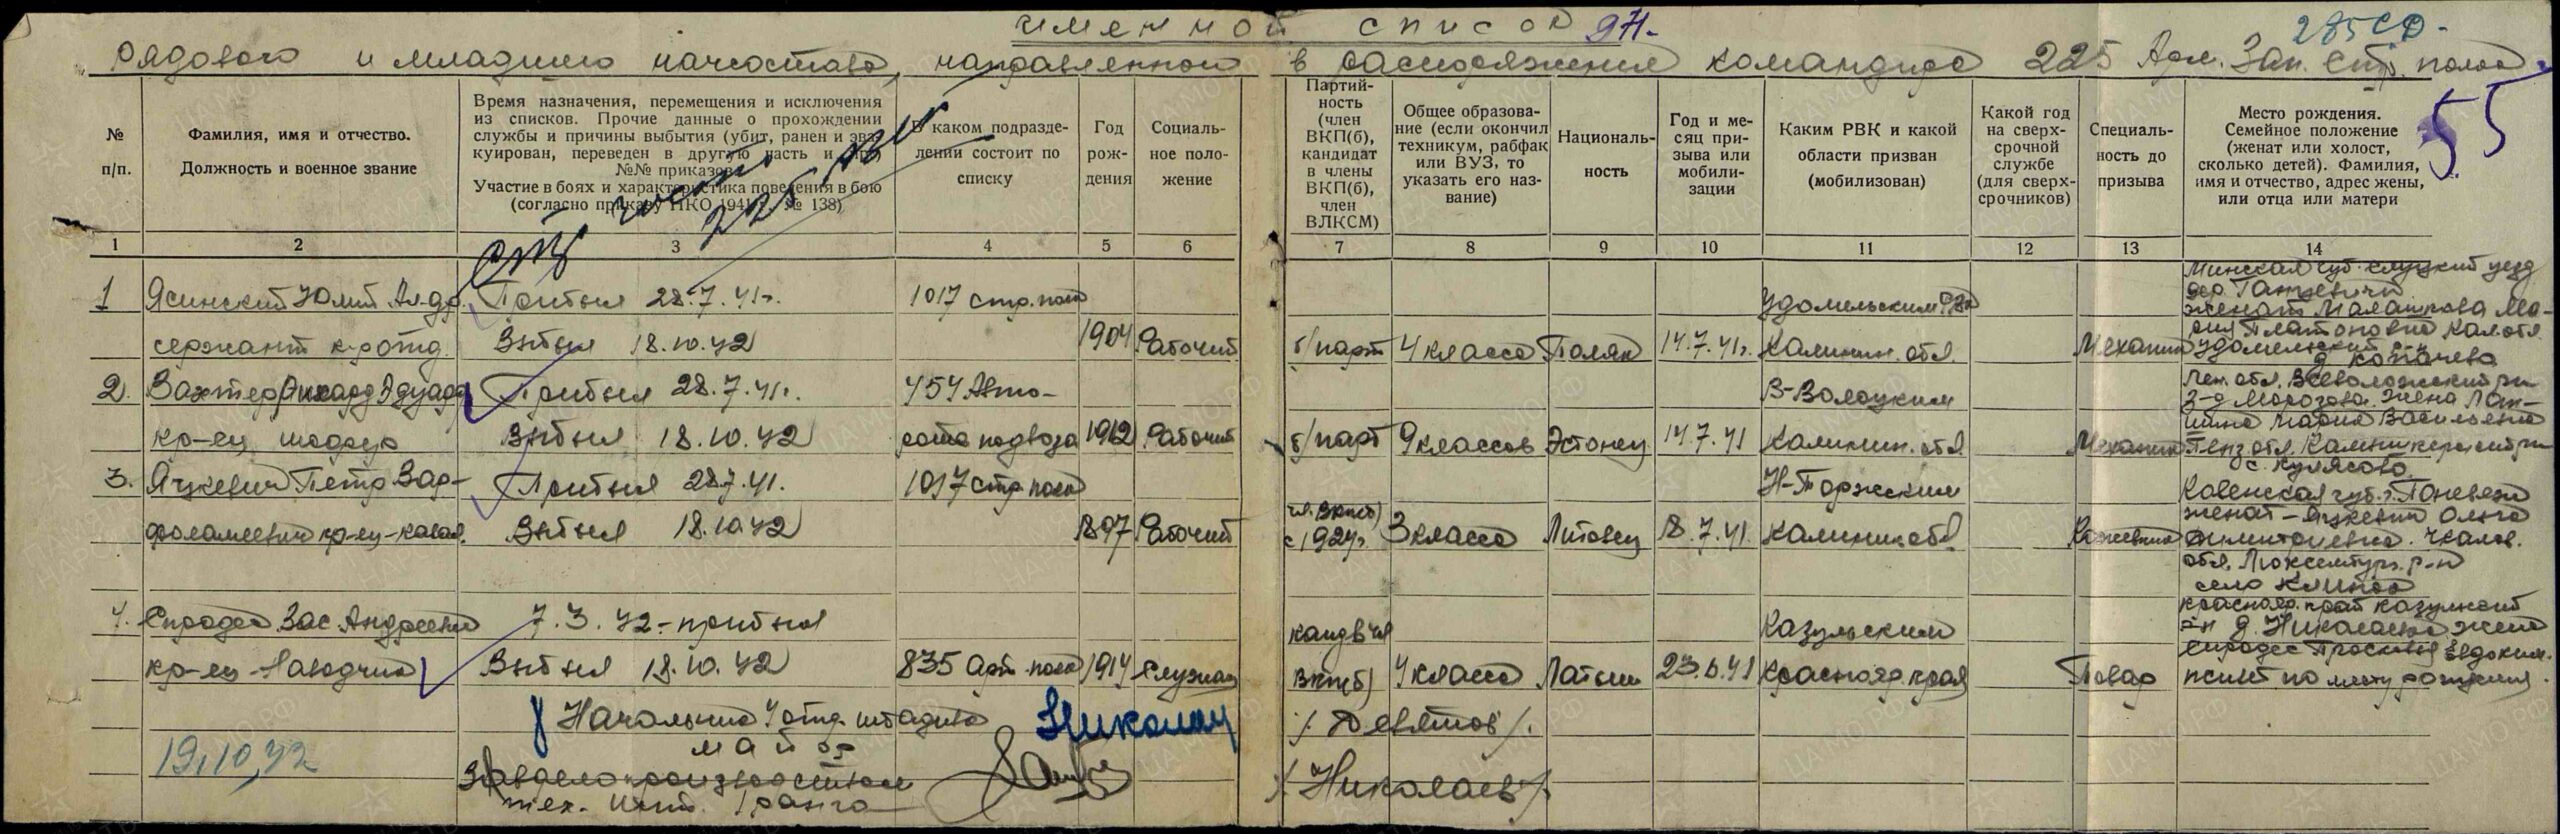 именной список
97.
285 СД.
рядового и младшего начсостава, направленного в распоряжение командира 225 Арм. Зап. Стр. полка.
55
№ п/п.
Фамилия, имя и отчество.
Должность и военное звание
Время назначения, перемещения и исключения
из списков. Прочие данные о прохождении
службы и причины выбытия (убит, ранен и эва-
куирован, переведен в другую часть и пр.)
№№ приказов
Участие в боях и характеристика поведения в бою
(согласно приказу НКО 1941 г. № 138)
В каком подразде-
лении состоит по
списку
Год
рож-
дения
Социаль-
ное поло-
жение
Партий-
ность
(член
ВКП(б),
кандидат
в члены
ВКП(б),
член
ВЛКСМ)
Общее образова-
ние (если окончил
техникум, рабфак
или ВУЗ, то
указать его наз-
вание)
Националь-
ность
Год и ме-
сяц при-
зыва или
мобили-
зации
Каким РВК и какой
области призван
(мобилизован)
Какой год
на сверх-
срочной
службе
(для сверх-
срочников)
Специаль-
ность до
призыва
Место рождения.
Семейное положение
(женат или холост,
сколько детей). Фамилия,
имя и отчество, адрес жены,
или отца или матери
225 АЗСП
1 2 3 4 5 6 7 8 9 10 11 12 13 14
1 Ясинский Юлий Ал-др.
сержант к-р отд.
Прибыл 28.7.41г.
Выбыл 18.10.42
1017 стр. полк
1904 Рабочий
б/парт 4 класса Поляк 14.7.41г.
Удомельским РВК
Калинин. обл.
Механик
Минская губ. Слуцкий уезд
дер. Ганцевичи
женат Малашкова Ма-
рия Платоновна Кал. обл.
Удомельский р-н
д. Копачева
2. Вахтер Рихард Эдуард.
кр-ец шофер
Прибыл 28.7.41г.
Выбыл 18.10.42
454 Авто-
рота подвоза 1912 Рабочий
б/парт 9 классов Эстонец 14.7.41
В-Волоцким
Калинин. обл.
Механик
Лен. обл. Всеволожский р-н
з-д Морозова. Жена
Мария Васильевна
Пенз. обл. Камешкерский р-н
с. Кулясово
3. Яцкевич Петр Вар-
фоламеевич кр-ец-ковал.
Прибыл 28.7.41.
Выбыл 18.10.42
1017 стр. полк
1897 Рабочий
чл. ВКП(б)
с 1924г. 3 класса Литовец 18.7.41
Н-Торжским
Калинин. обл.
Кожевник
Ковенская губ. г. Поневеж
женат – Яцкевич Ольга
Дмитриевна. Чкалов.
обл. р-н
село
4. Спродес Зас. Андреевич
кр-ец-Наводчик
7.3.42 - прибыл
Выбыл 18.10.42
835 Арт. полк 1914 Служащ
канд в чл
ВКП(б) 4 класса Латыш 23.6.41
Казульским
Красноярск. края
Повар
Краснояр. край Казульский
р-н д. Николаевка жена
Спродес Просковья Евдоким.
живет по месту рождения.
Начальник 4 отд. штадива
майор
Николаев
/ Девятов /.
19.10.42
Завделопроизводством
тех. инт. 1 ранга
/ Николаев /.